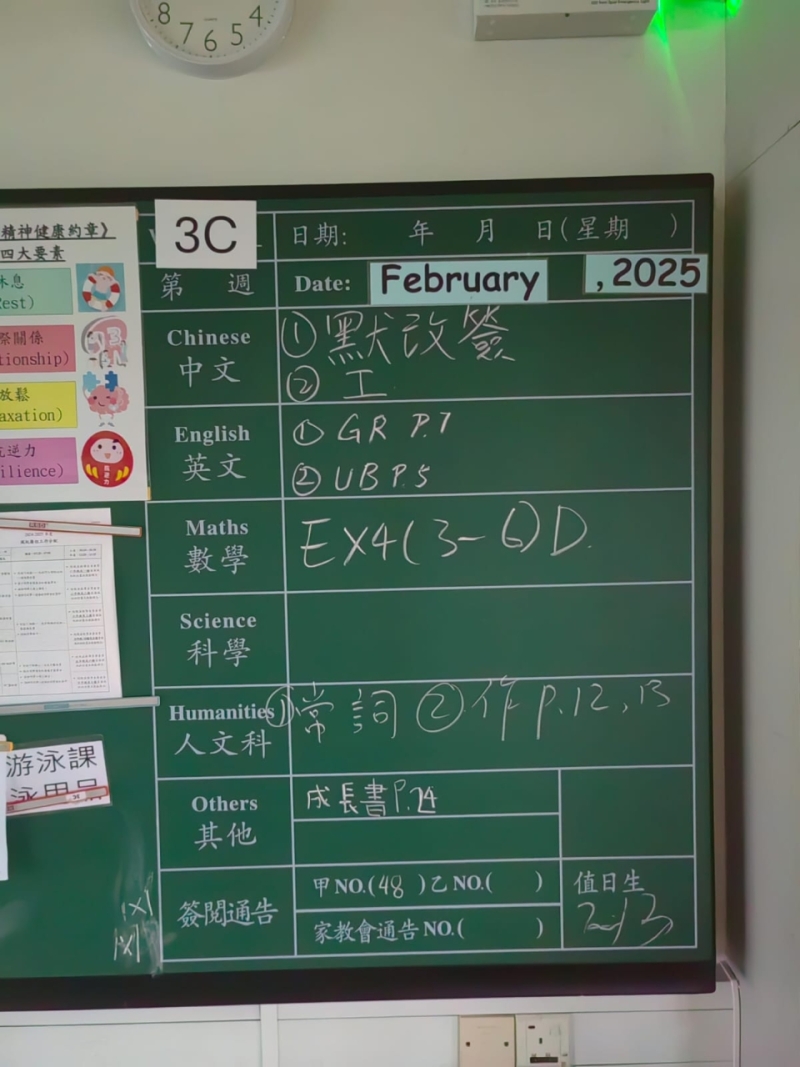 8 7 6 5 4
精神健康約章》
四大要素
休息
Rest)
際關係
tionship)
放鬆
axation)
抗逆力
ilience)
3C
日期: 年 月 日(星期 )
第 週 Date: February , 2025
Chinese
中文
① 默改簽
② 工
English
英文
① GR P.7
② UB P.5
Maths
數學
EX4(3-6)D.
Science
科學
Humanities
人文科
① 常詞 ② 作 P.12, 13
Others
其他
成長書 P.24
簽閱通告
甲 NO.(48 )乙 NO.( )
家教會通告 NO.( )
值日生
游泳課
泳用品